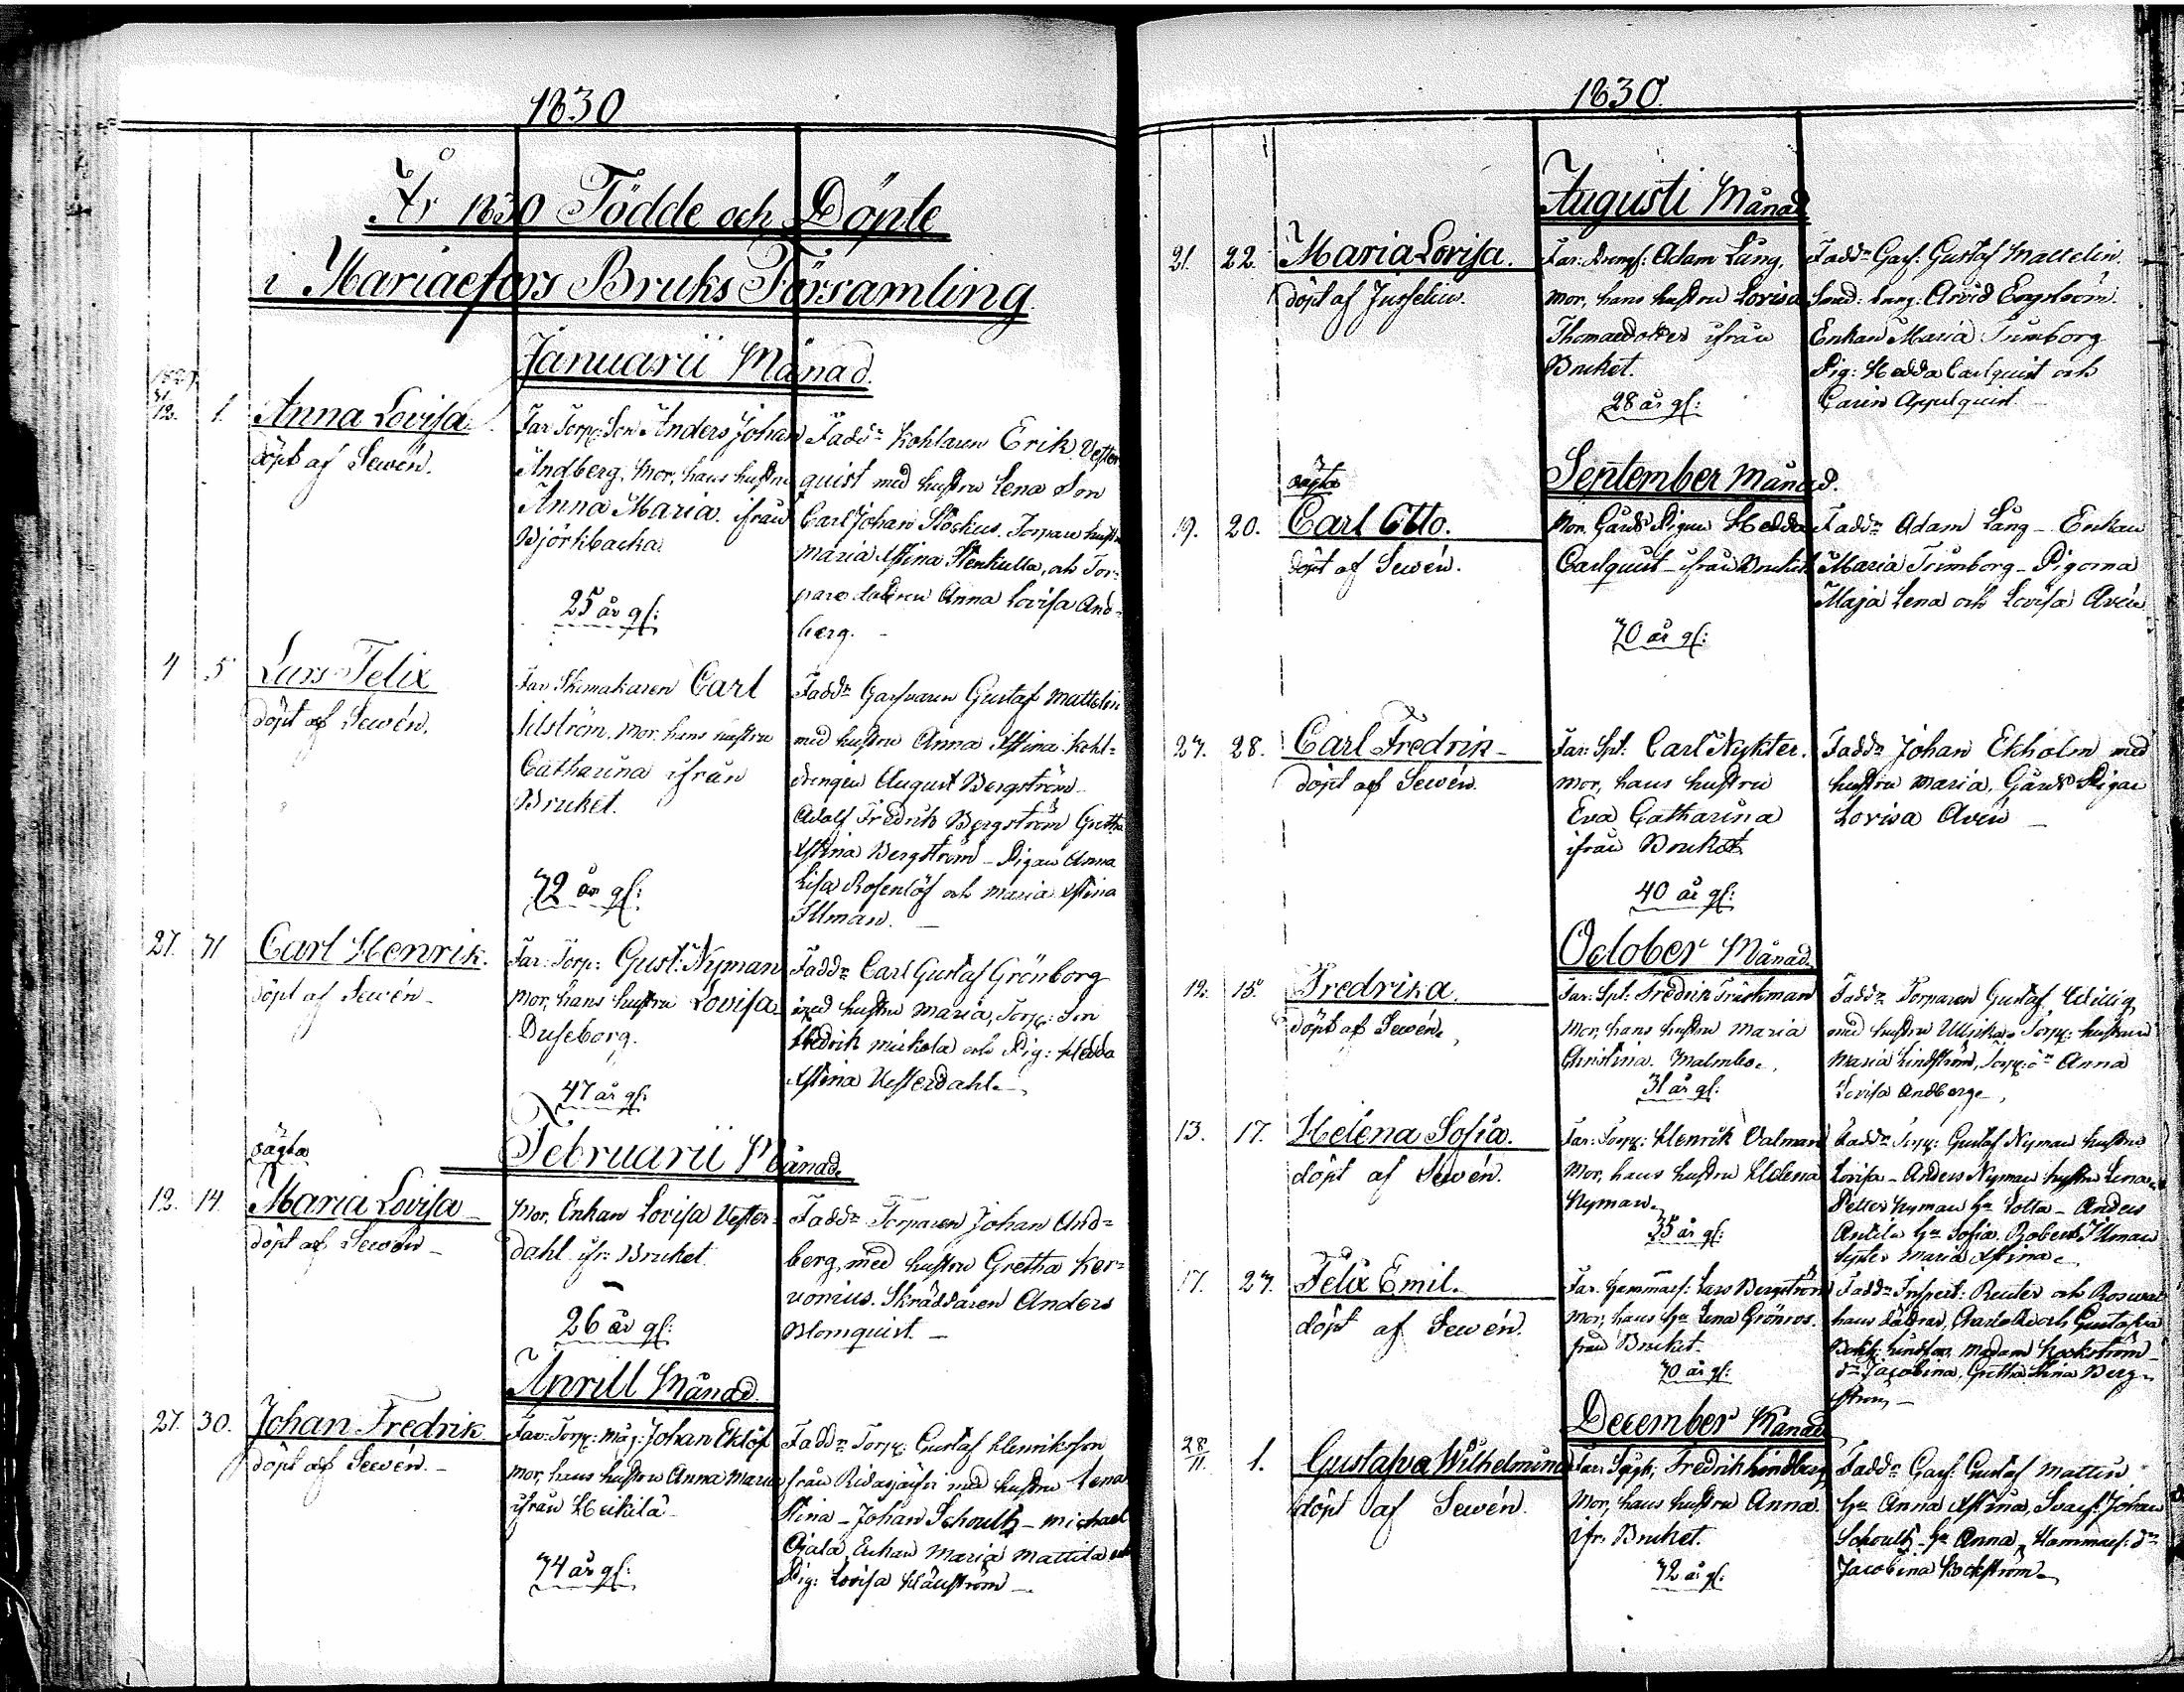 1830
År 1830 Födde och Döpte
i Mariaefors Bruks Församling
Januarii Månad.
1829
31
12. 1. Anna Lovisa.
döpt af Sewén.
Far Torp: Son Anders Johan
Andberg, Mor, hans hustru
Anna Maria. ifrån
Björkbacka.
25 år gl:
Fadd:r Kohlaren Erik Vester
quist med hustru Lena Son
Carl Johan Stockus. Torpare hustr
Maria Stina Stenkulla, och Tor=
pare Anna Lovisa And=
berg.
4 5 Lars Felix
döpt af Sewén.
Far Skomakaren Carl
mor, hans hustru
Catharina ifrån
Bruket.
32 år gl:
Fadd:r Garfvaren Gustaf Mattelin
med hustru Anna Stina Kohl=
drengen August Bergström
Adolf Fredrik Bergström Gretha
Stina Bergström – Pigan Anna
Lisa Rosenlöf och Maria Stina
Illman. –
27. 31 Carl Henrik.
döpt af Sewén –
Far: Torp: Gust: Nyman
Mor, hans hustru Lovisa
Duseborg.
47 år gl:
Fadd:r Carl Gustaf Grönborg
med hustru Maria, Torp: Son
Fredrik Mickola och Pig: Hedda
Stina Vesterdahl.
Februarii Månad.
oägta
12. 14. Maria Lovisa –
döpt af Sewén –
Mor, Enkan Lovisa Vester=
dahl ifr: Bruket.
26 år gl:
Fadd:r Torparen Johan And=
berg, med hustru Gretha Ker=
vonius. Skräddaren Anders
Blomquist. –
Aprill Månad.
27. 30. Johan Fredrik
döpt af Sewén. –
Far: Torp: Måg: Johan Eklöf
mor, hans hustru Anna Maria
ifrån Heikilä –
34 år gl:
Fadd:r Torp: Gustaf Henriksson
från Ridasjärfvi med hustru Lena
Stina – Johan Schoultz – Michael
Ojala, Enkan Maria Mattila och
Pig: Lovisa
1830.
Augusti Månad
21. 22. Maria Lovisa.
döpt af Juselius.
Far: Adam Lång,
mor, hans hustru Lovisa
Thomasdotter ifrån
Bruket.
28 år gl:
Fadd:r Garf: Gustaf Mattelin.
Arvid Engström.
Enkan Maria Trimborg
Pig: Hedda Carlquist och
Carin Appelquist
September Månad.
oägta
19. 20. Carl Otto.
döpt af Sewén.
Mor, Gårds Pigan Hedda
Carlquist – ifrån Bruket
30 år gl:
Fadd:r Adam Lång – Enkan
Maria Trimborg – Pigorna
Maja Lena och Lovisa Avén
27. 28. Carl Fredrik –
döpt af Sewén.
Far: Spt: Carl Nykter.
mor, hans hustru
Eva Catharina
ifrån Bruket
40 år gl:
Fadd:r Johan Ekholm med
hustru Maria, Gårds Pigan
Lovisa Avén –
October Månad.
12. 15. Fredrika
döpt af Sewén.
Far: Spt: Fredrik Triskman
Mor, hans hustru Maria
Christina. Malmbo.
31 år gl:
Fadd:r Torparen Gustaf Willig
med hustru Ullrika. Torp: hustrun
Maria Lindström, Torp: d:r Anna
Lovisa Andberg.
13. 17. Helena Sofia.
döpt af Sewén.
Far: Torp: Henrik Valman
Mor, hans hustru Helena
Nyman.
35 år gl:
Fadd:r Torp: Gustaf Nyman hustru
Lovisa – Anders Nyman hustru Lena
Petter Nyman h:u Lotta – Anders
Antila h:u Sofia. Robert Illman
Syster Maria Stina.
17. 27. Felix Emil.
döpt af Sewén.
Far: Hammarsf: Lars Bergström
Mor, hans h:u Lena Grönros.
från Bruket.
40 år gl:
Fadd:r Inspect: Reuter och
hans Charlotta och Gustafva
Bokh: Lindfors, Madam Hockström
d:r Jacobina, Gretha Stina Berg=
ström –
December Månad
28/11. 1. Gustafva Wilhelmina
döpt af Sewén.
Far: Fredrik Lindberg
Mor, hans hustru Anna.
ifr: Bruket.
32 år gl:
Fadd:r Garf: Gustaf Mattlin
h:u Anna Stina, Svarf: Johan
Schoultz – h:u Anna, Hammarsf: d:r
Jacobina Hockström